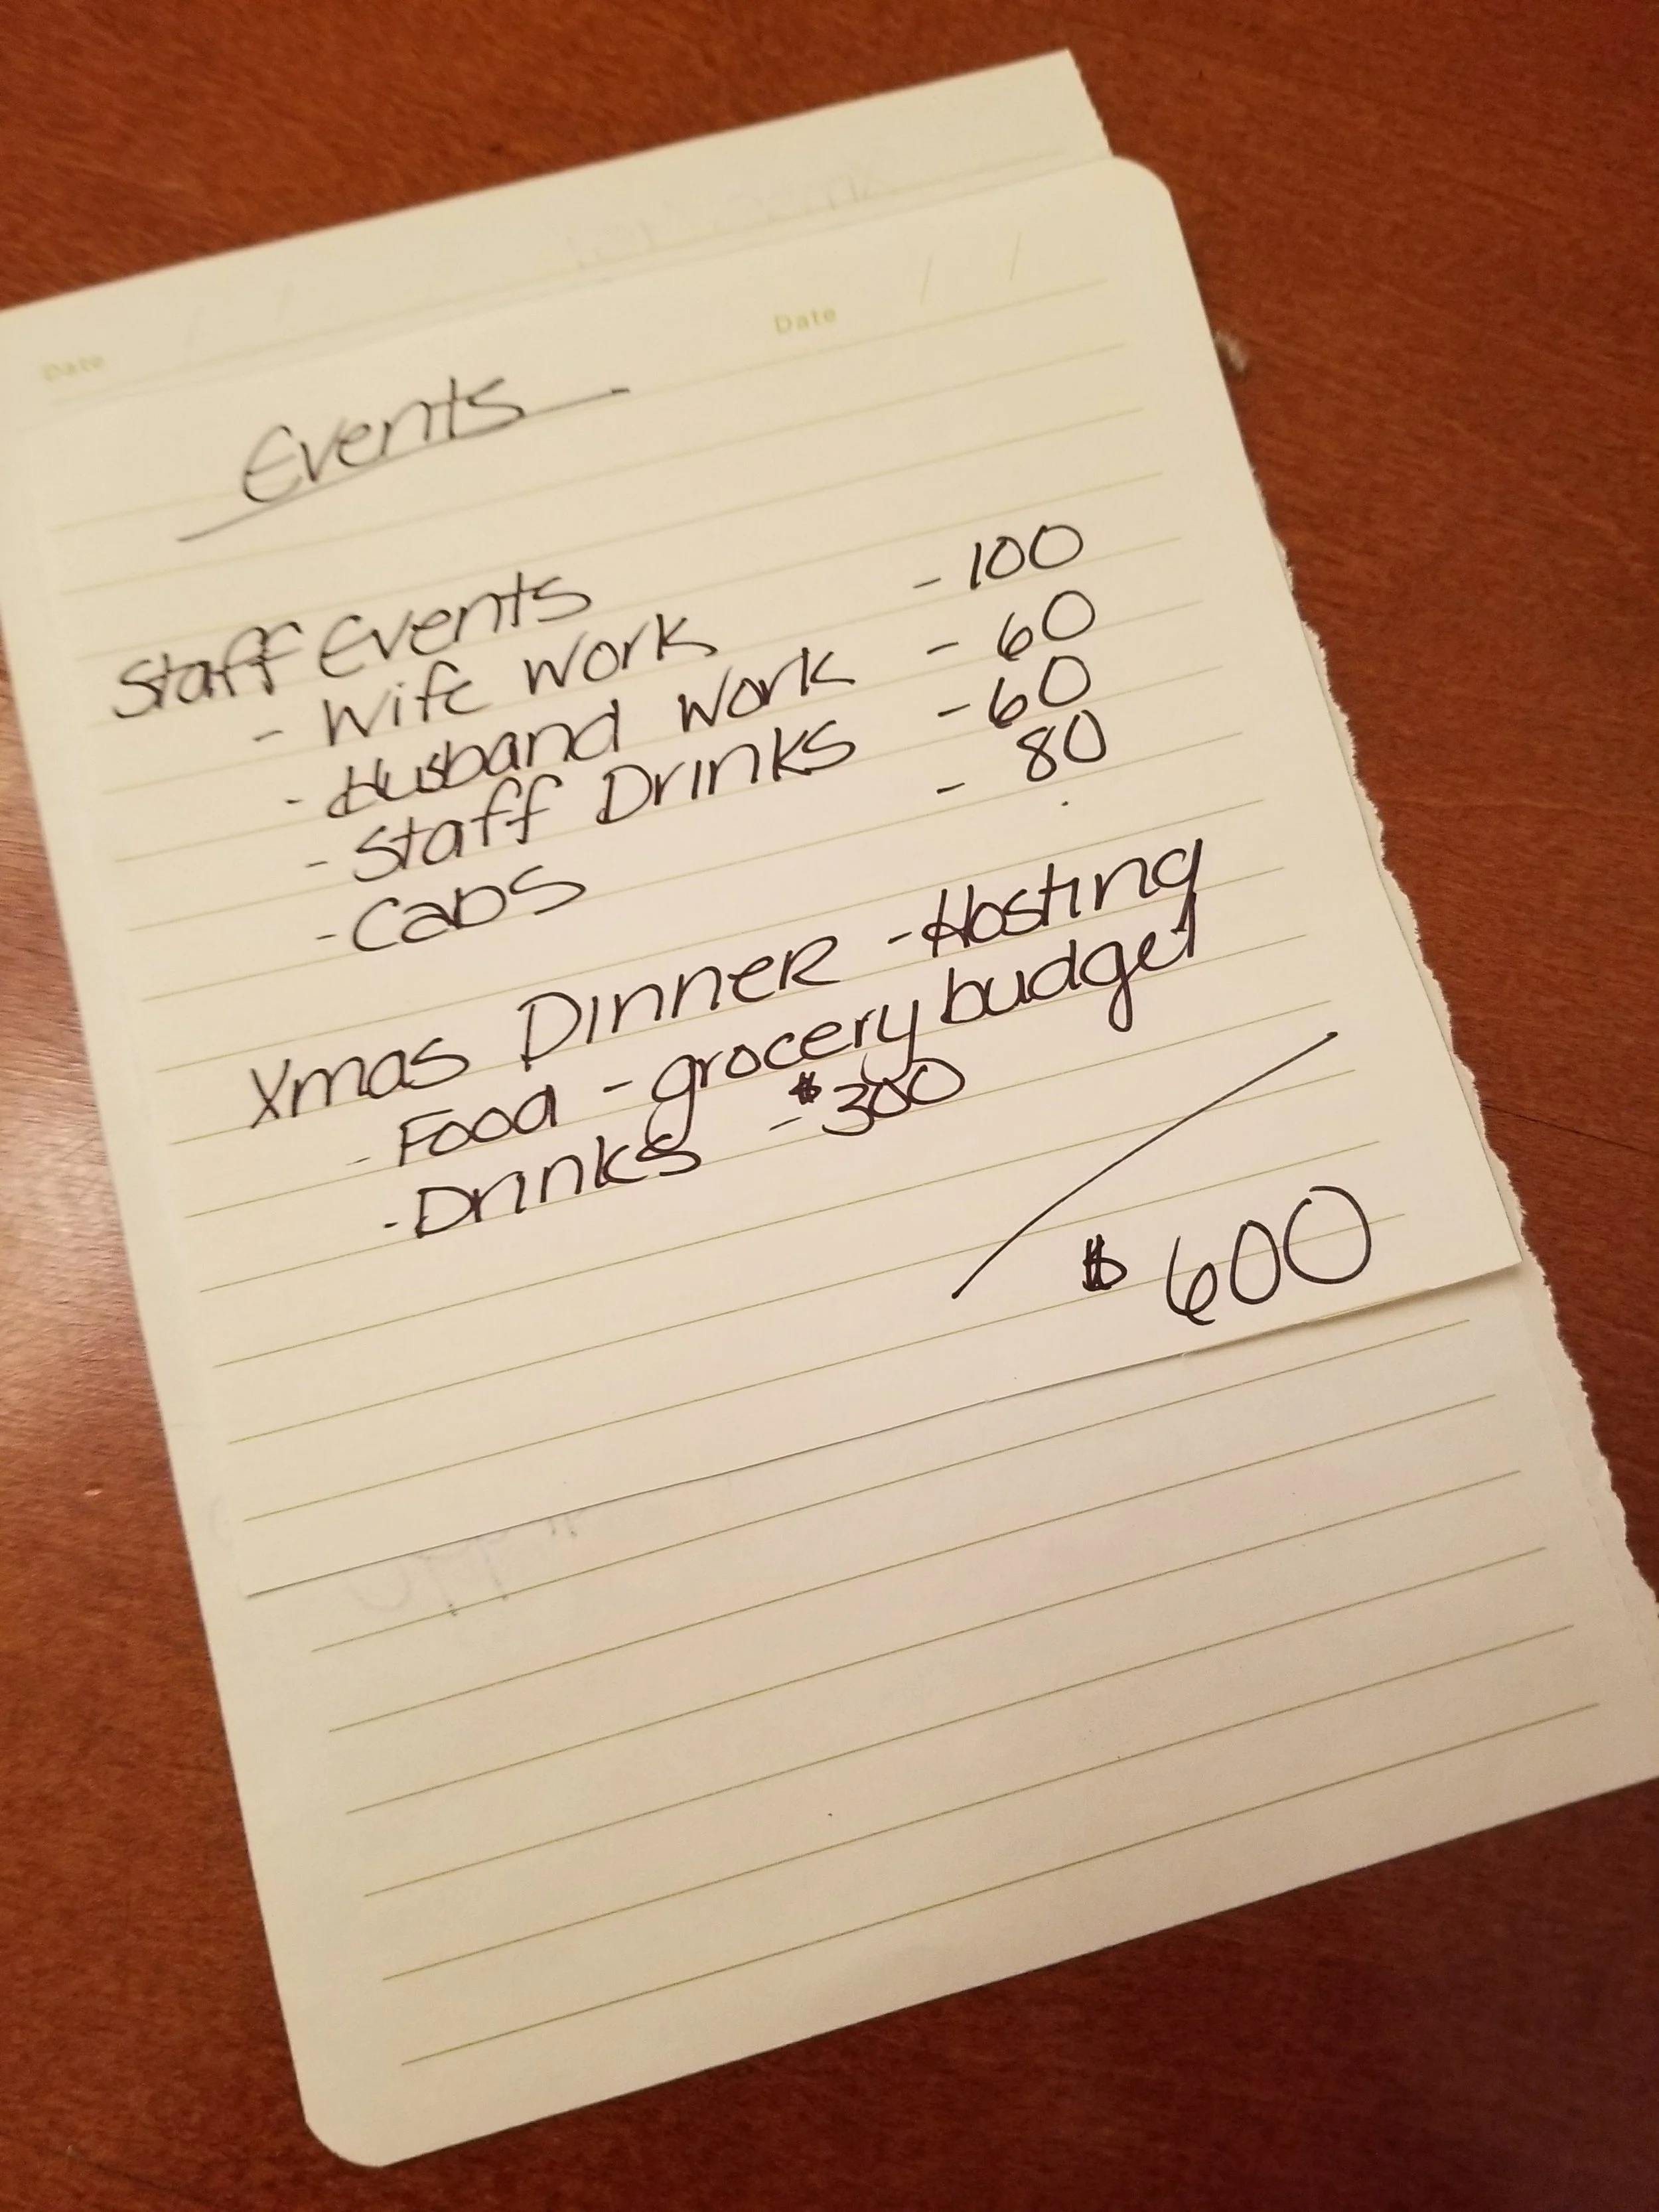 Date
Date / /
Events
Staff Events
- Wife Work - 100
- Husband Work - 60
- Staff Drinks - 60
- Cabs - 80
Xmas Dinner - Hosting
- Food - grocery budget
- Drinks - $300
$600